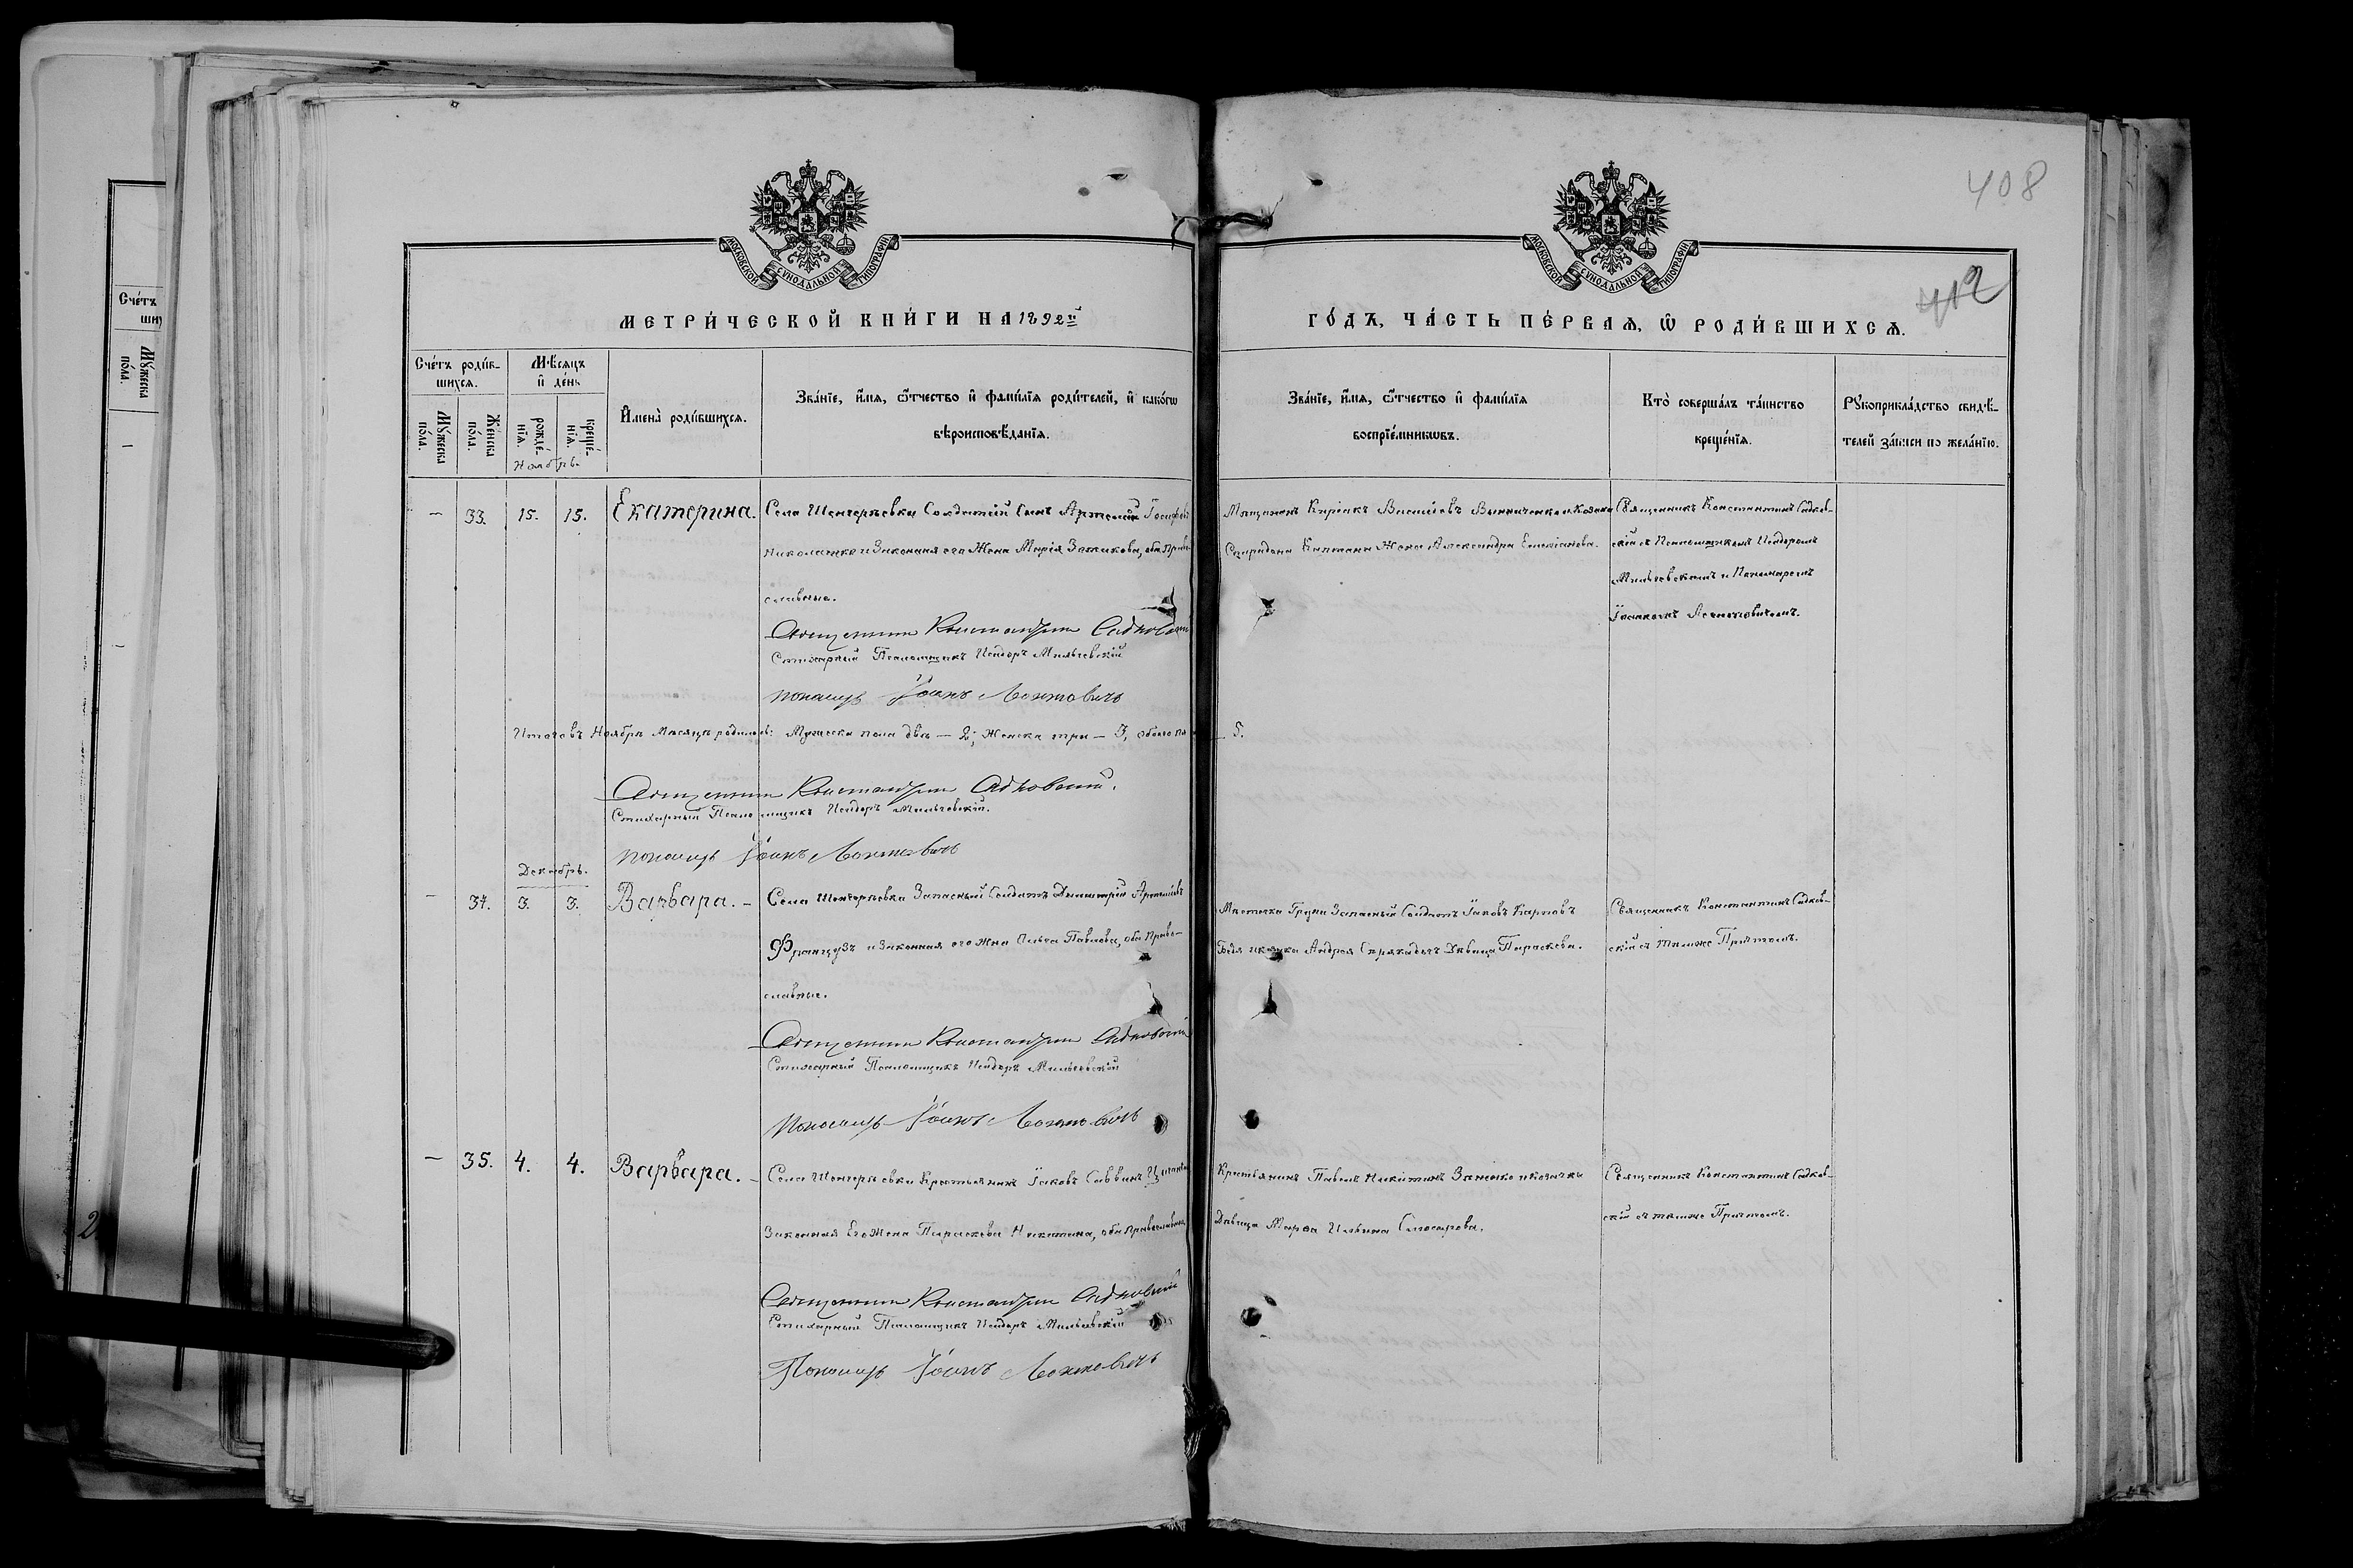 408
412
МОСКОВСКОЙ СѴНОДАЛЬНОЙ ТИПОГРАФІИ
МОСКОВСКОЙ СѴНОДАЛЬНОЙ ТИПОГРАФІИ
МЕТРИ́ЧЕСКОЙ КНИ́ГИ НА 1892й
ГО́ДЪ, ЧА́СТЬ ПЕ́РВАЯ, Ѡ РОДИ́ВШИХСЯ.
Сче́тъ роди́в-
шихся.
Мѣ́сяцъ
и де́нь
Му́жеска
по́ла.
Же́нска
по́ла.
рожде́-
нія.
креще́-
нія.
Имена̀ роди́вшихся.
Зва́ніе, и́мя, ѻ́тчество и фами́лія роди́телей, и како́гѡ
вѣроисповѣ́данія.
Зва́ніе, и́мя, ѻ́тчество и фами́лія
воспріе́мникѡвъ.
Кто̀ соверша́лъ та́инство
креще́нія.
Рꙋкоприкла́дство свидѣ́-
телей за́писи по жела́нію.
Ноябрь
— 33. 15. 15. Екатерина. Села Шенгеръевки Солдатскій Сынъ Артемій Іосифовъ
Николаенко и Законная его Жена Марія Зотикова, оба Право-
славные.
Священникъ Константинъ Садковскій
Стихарный Псаломщикъ Исидоръ Мильгевскій
Пономарь Іоаннъ Леонтовичъ
Мещанинъ Киріакъ Васильевъ Винниченко и Козака
Спиридона Калтана Жена Александра Емеліанова.
Священникъ Константинъ Садков-
скій съ Псаломщикомъ Исидоромъ
Мильгевскимъ и Пономаремъ
Іоанномъ Леонтовичемъ.
Итого въ Ноябрѣ Мѣсяцѣ родилось: Мужеска пола два — 2; Женска три — 3, обоего по — 5.
Священникъ Константинъ Садковскій.
Стихарный Псаломщикъ Исидоръ Мильгевскій.
Пономарь Іоаннъ Леонтовичъ
Декабрь.
— 34. 3. 3. Варвара. — Села Шенгеръевки Запасный Солдатъ Димитрій Артеміевъ
Французъ и Законная его Жена Ольга Павлова, оба Право-
славные.
Священникъ Константинъ Садковскій
Стихарный Псаломщикъ Исидоръ Мильгевскій
Пономарь Іоаннъ Леонтовичъ
Мѣстечка Груни Запасный Солдатъ Іаковъ Карповъ
Бѣдя и козака Андрея дочь Дѣвица Параскева.
Священникъ Константинъ Садков-
скій съ тѣмже Причтомъ.
— 35. 4. 4. Варвара. — Села Шенгеръевки Крестьянинъ Іаковъ Саввинъ
Законная Его Жена Параскева Никитина, оба Православные
Священникъ Константинъ Садковскій
Стихарный Псаломщикъ Исидоръ Мильгевскій
Пономарь Іоаннъ Леонтовичъ
Крестьянинъ Павелъ Никитинъ и козачка
Дѣвица Марѳа Ильина Слюсарева.
Священникъ Константинъ Садков-
скій съ тѣмже Причтомъ.